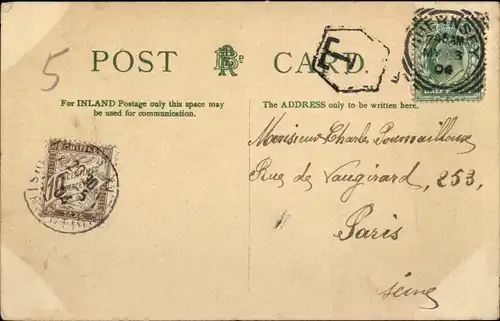 5
POST CARD
T
GUERNSEY
MY 3
04
HALF P
For INLAND Postage only this space may
be used for communication.
The ADDRESS only to be written here.
10
Monsieur Charles
Rue de Vaugirard, 253,
Paris
Seine